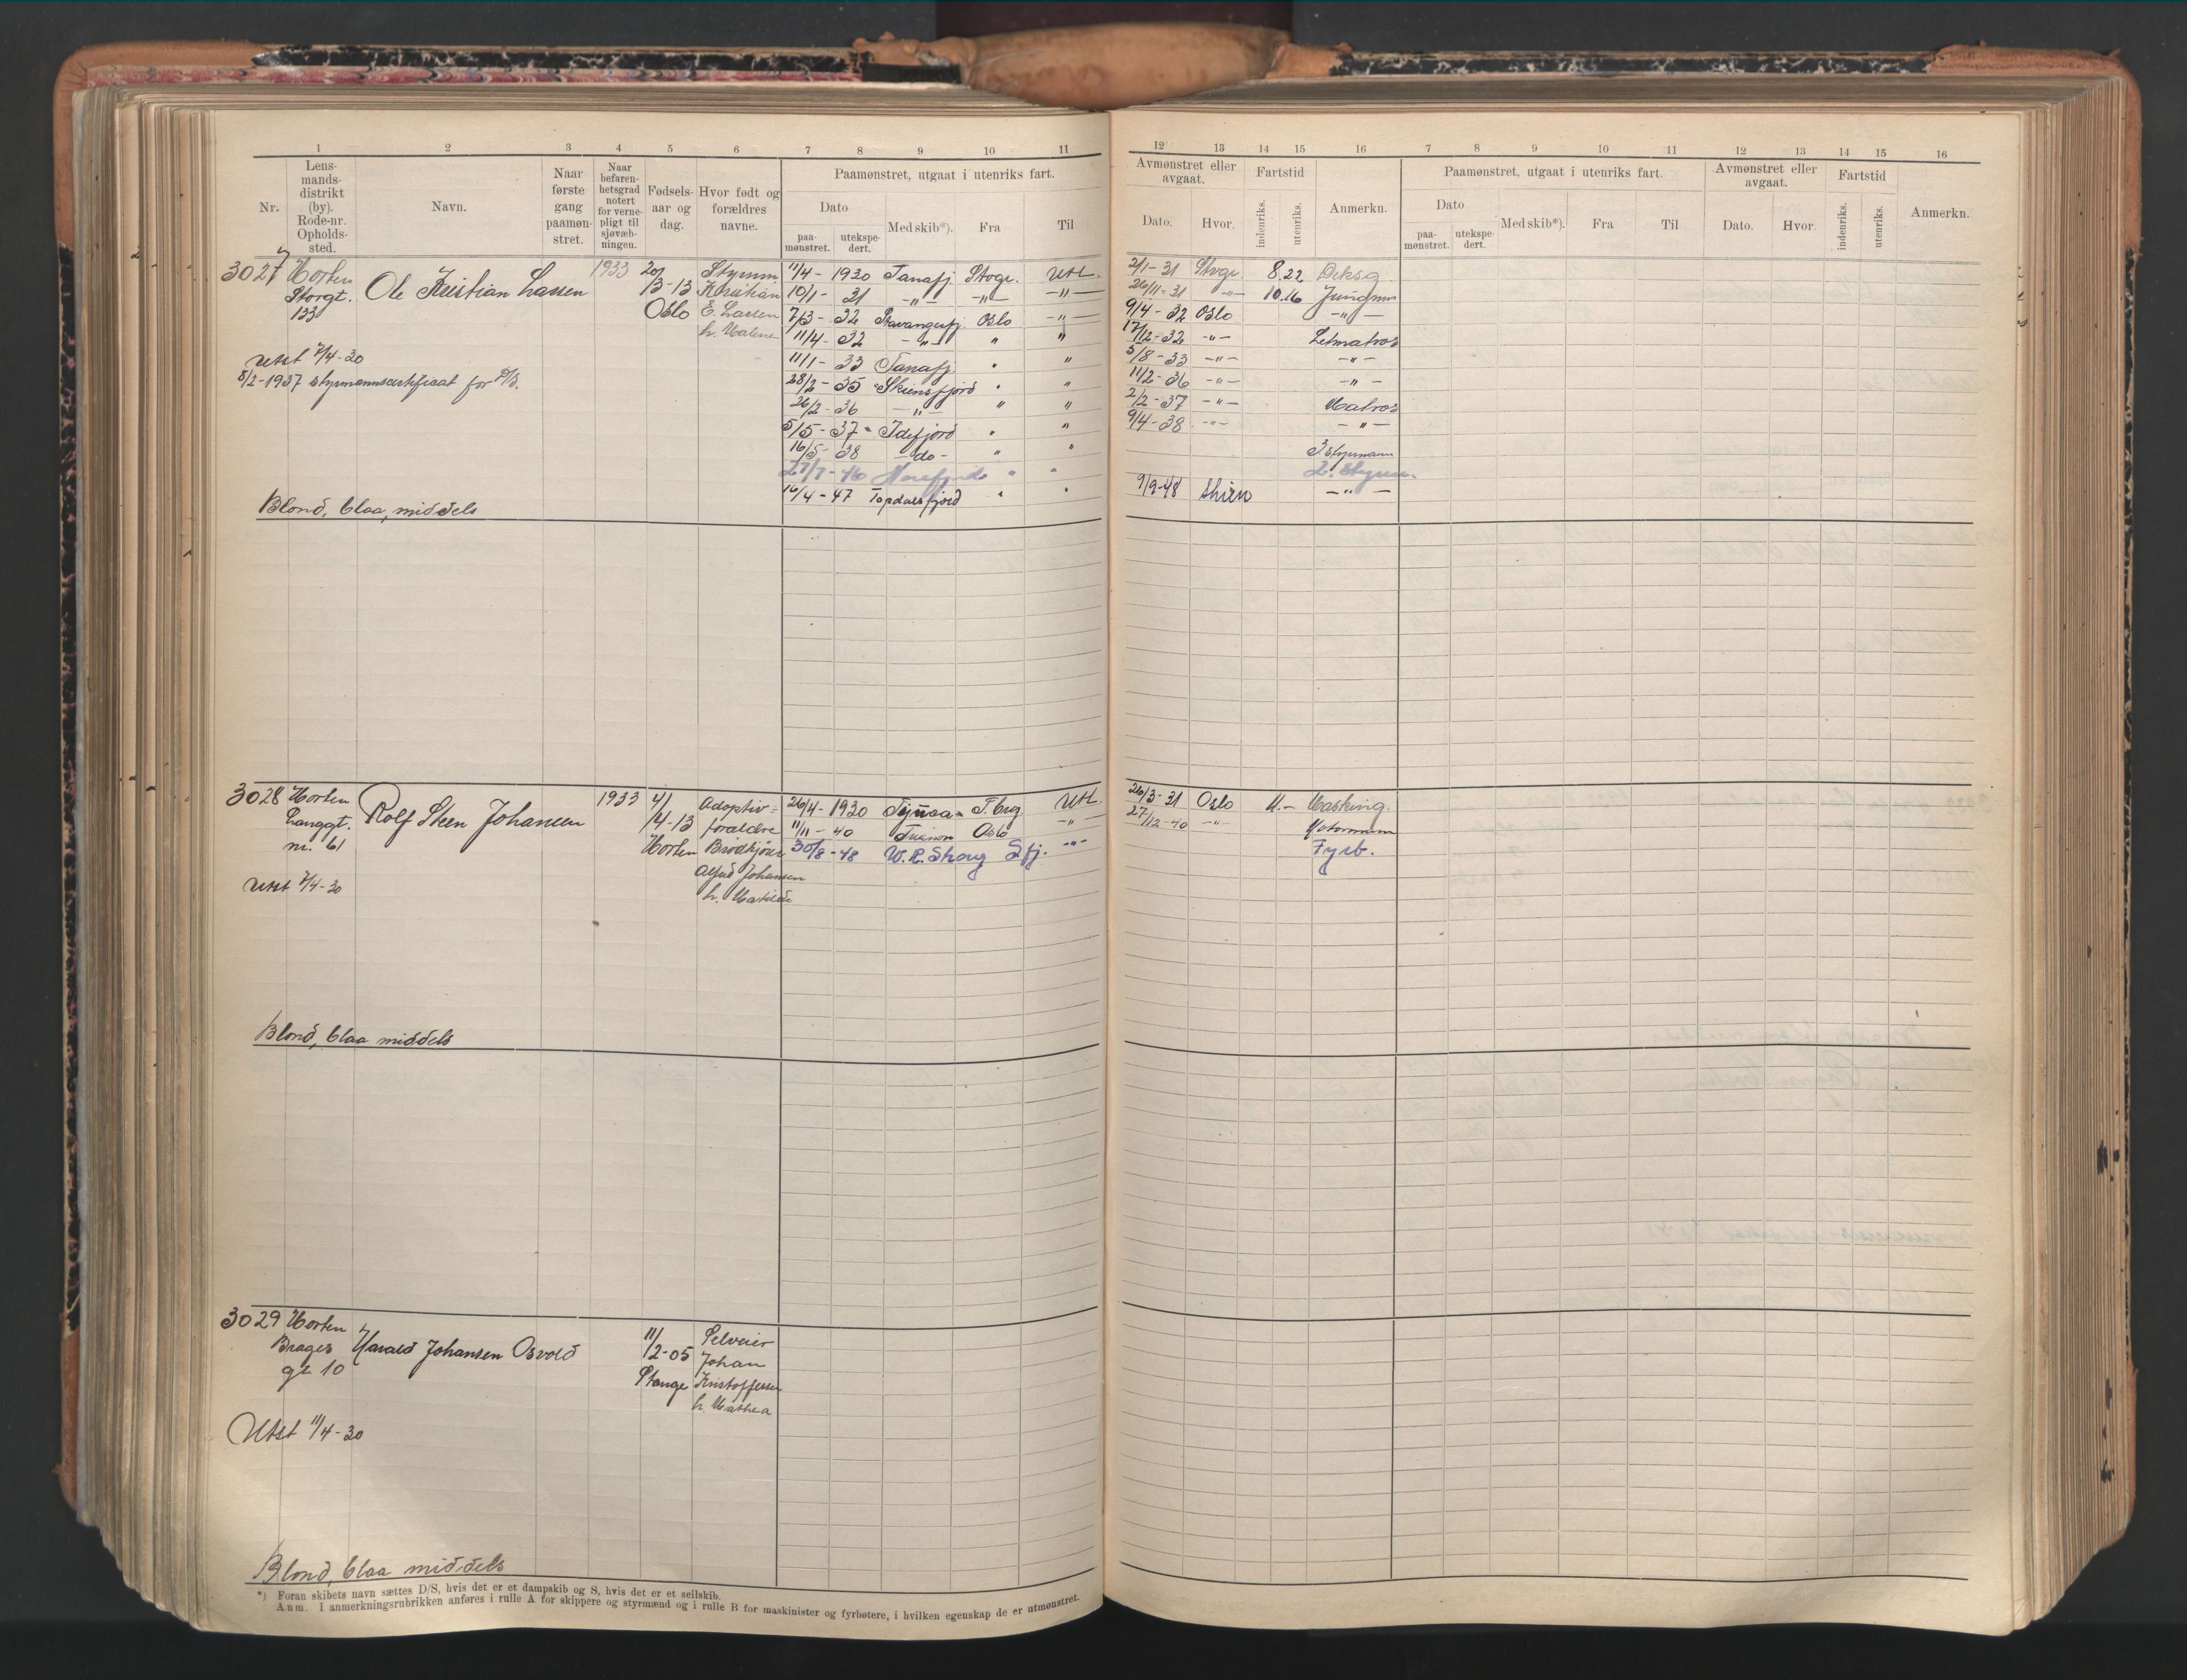 1 2 3 4 5 6 7 8 9 10 11
Nr. Lensmandsdistrikt (by). Rode-nr. Opholdssted. Navn. Naar første gang paamønstret. Naar befarenhetsgrad notert for vernepligt til sjøvæbningen. Fødselsaar og dag. Hvor født og forældres navne. Paamønstret, utgaat i utenriks fart.
Dato Med skib*). Fra Til
paamønstret. utekspedert.
12 13 14 15 16 7 8 9 10 11 12 13 14 15 16
Avmønstret eller avgaat. Fartstid Anmerkn. Paamønstret, utgaat i utenriks fart. Avmønstret eller avgaat. Fartstid Anmerkn.
Dato. Hvor. indenriks. utenriks. Dato Med skib*). Fra Til Dato. Hvor. indenriks. utenriks.
paamønstret. utekspedert.
3027 Horten 1933 20/ Styrm. 11/4 - 1930 Tanafj. Stvgr. Utl. 2/1-31 Stvgr. 8.22 Deksg.
Storgt. Ole Kristian Larsen /3-13 Kristian 10/1- 31 -"- -"- -"- 26/11-31 -"- 10.16 Jungmn
133 Oslo E. Larsen 7/3- 32 Stavangerfj. Oslo -"- 9/4-32 Oslo -"-
h. Malene 11/4- 32 -"- " " 17/12-32 -"- Letmatros
utst 7/4-30 11/1- 33 Tanafj. " " 5/8-33 -"- -"-
8/2-1937 styrmannscertificat for D/S. 28/2- 35 Skiensfjord " " 11/2-36 -"- -"-
26/2- 36 -"- " " 2/2-37 -"- Matros
5/5-37 Idefjord " " 9/4-38 -"- -"-
16/5- 38 -do- " " 3 styrmann
27/7-46 " " 2. Styrm.
16/4-47 Topdalsfjord " " 9/9-48 Skien -"-
Blond, blaa, middels
3028 Horten 1933 4/ Adoptiv- 26/4-1930 T.brg. Utl. 26/3-31 Oslo 11.- Masking.
Langgt. Rolf Steen Johansen /4-13 forældre 11/11-40 Oslo -"- 27/12-40 -"- Motormann
nr. 61 Horten Brødkjører 30/8-48 Sfj. -"- Fyrb.
Alfred Johansen
utst 7/4-30 h. Matilde
Blond, blaa middels
3029 Horten 11/ Selveier
Brages Harald Johansen Osvold /2-05 Johan
gt 10 Stange Kristoffersen
h. Mathea
Utst 11/4-30
Blond, blaa middels
*) Foran skibets navn sættes D/S, hvis det er et dampskib og S, hvis det er et seilskib.
Anm. I anmerkningsrubrikken anføres i rulle A for skippere og styrmænd og i rulle B for maskinister og fyrbøtere, i hvilken egenskap de er utmønstret.